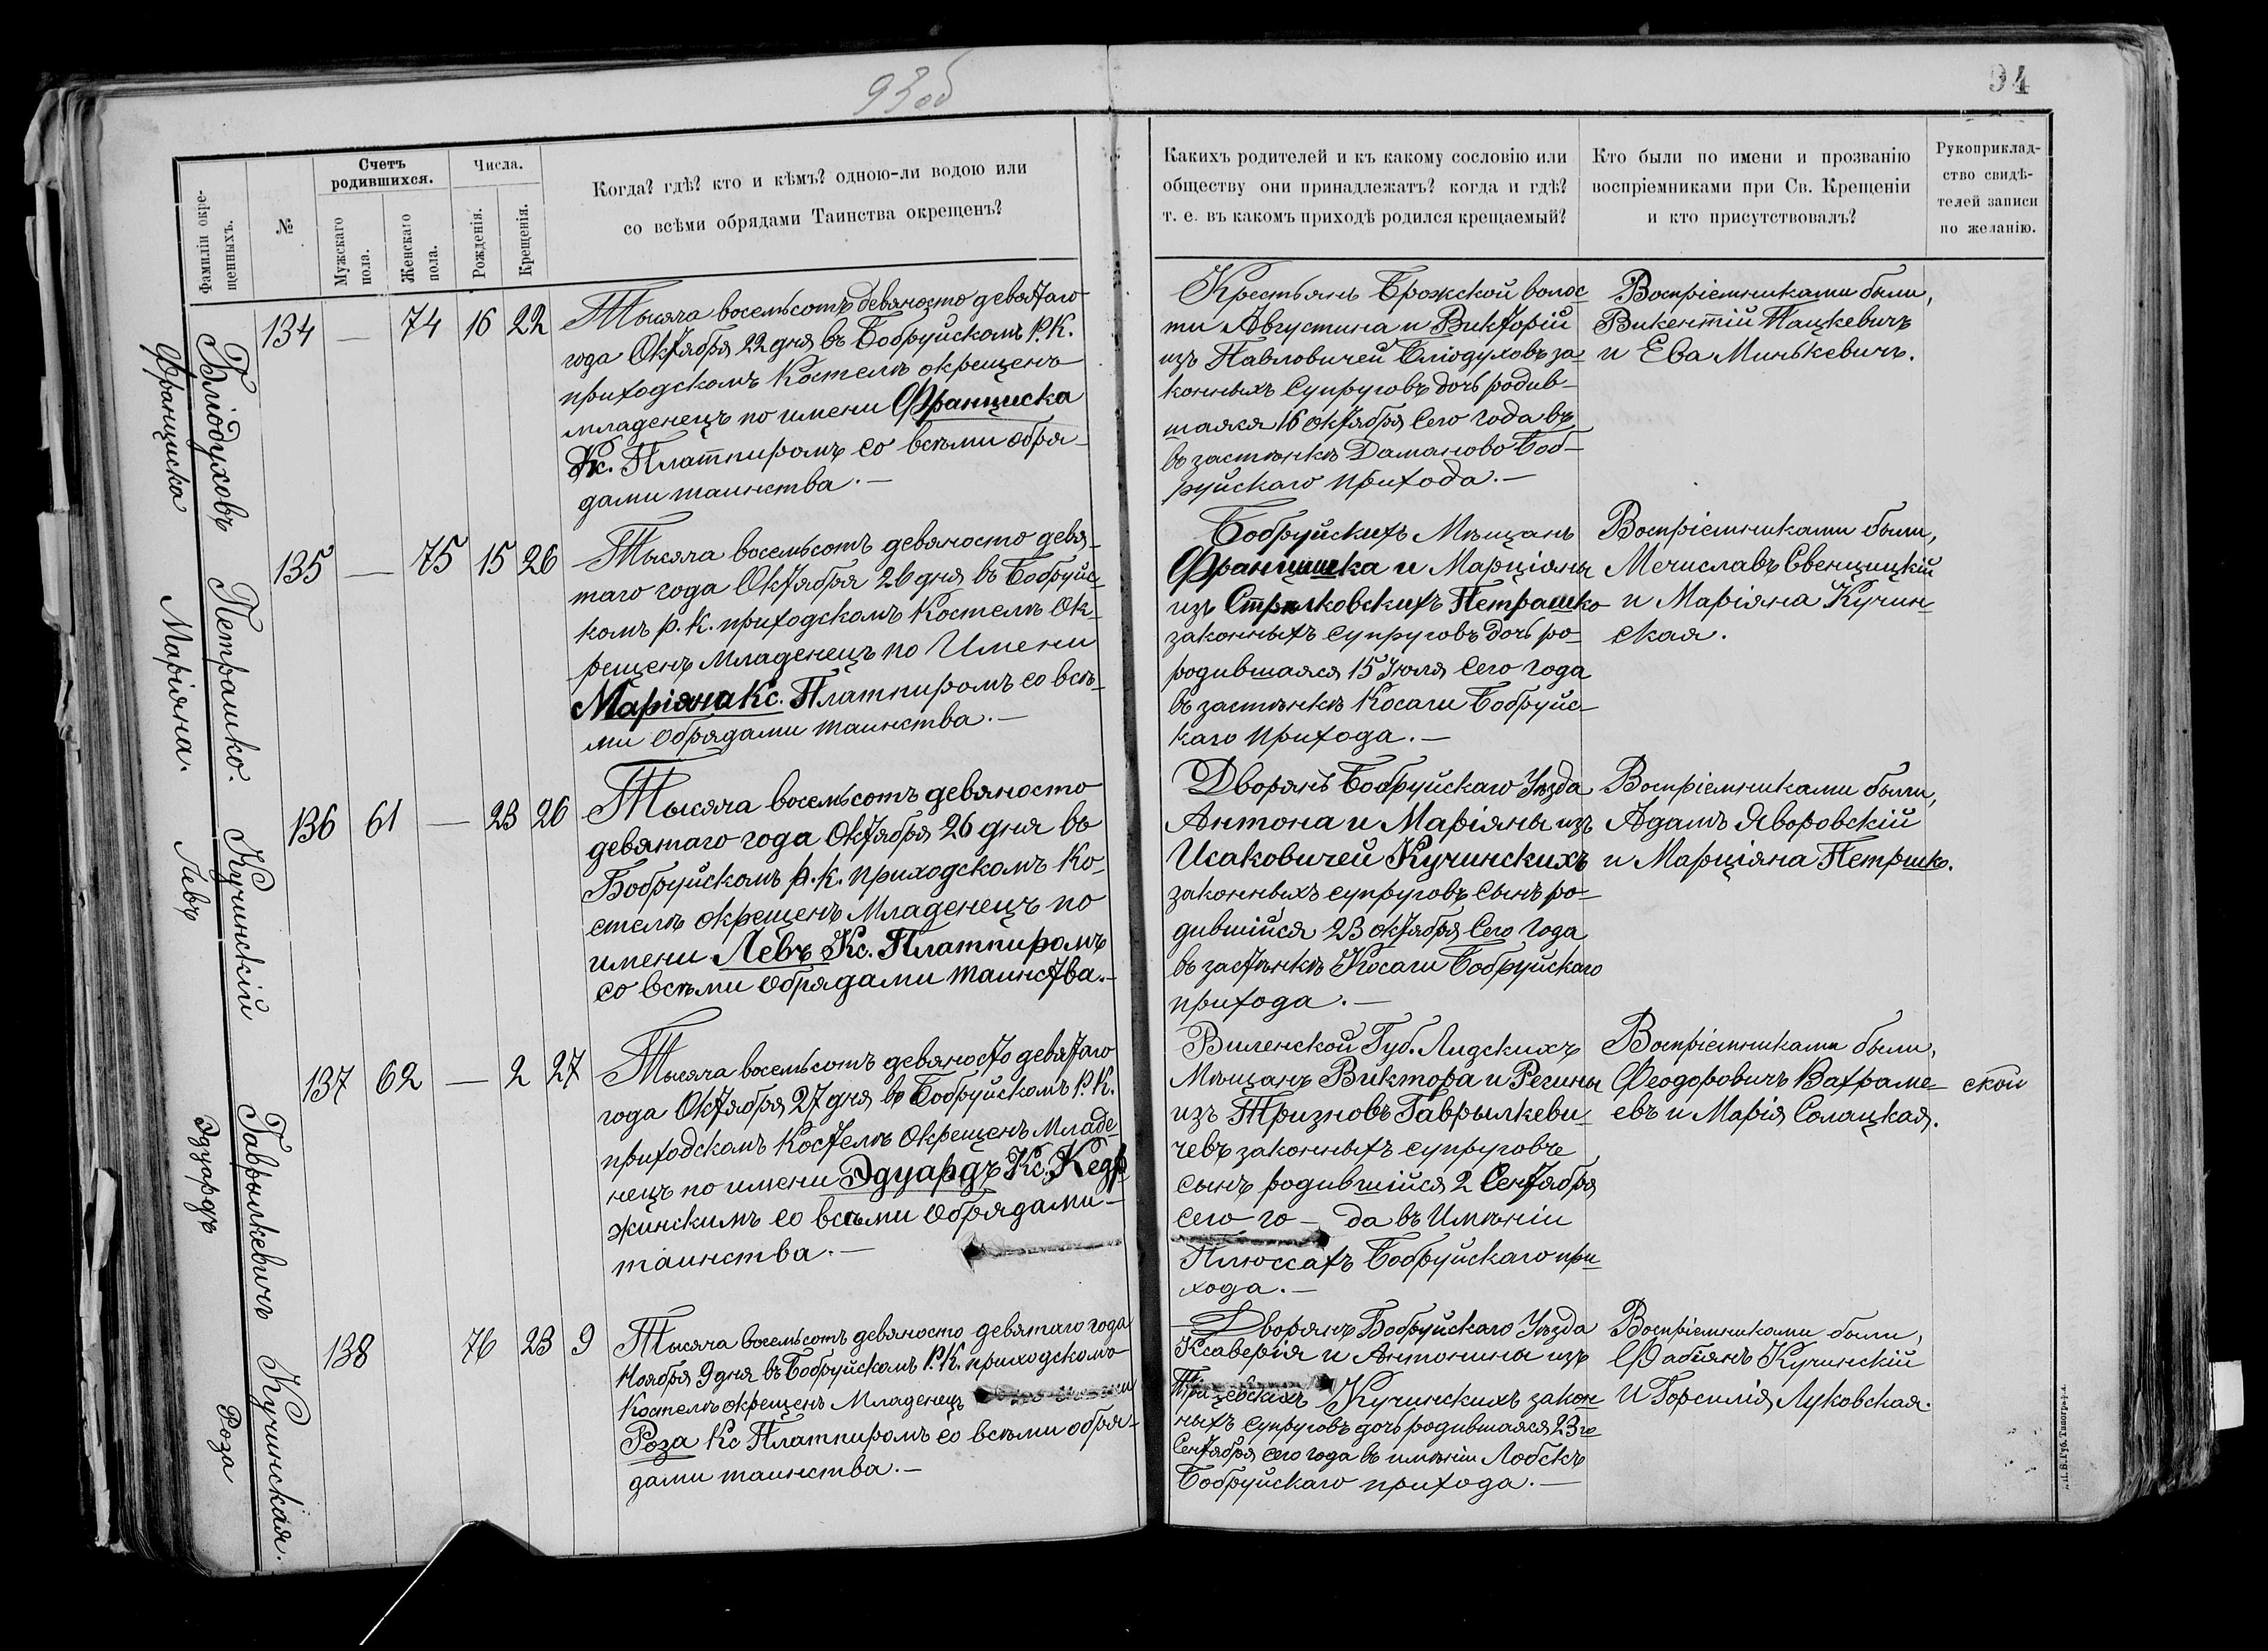 93об
94
Фамиліи окре-
щенныхъ.
№
Счетъ
родившихся.
Мужскаго
пола.
Женскаго
пола.
Числа.
Рожденія.
Крещенія.
Когда? гдѣ? кто и кѣмъ? одною-ли водою или
со всѣми обрядами Таинства окрещенъ?
Какихъ родителей и къ какому сословію или
обществу они принадлежатъ? когда и гдѣ?
т. е. въ какомъ приходѣ родился крещаемый?
Кто были по имени и прозванію
воспріемниками при Св. Крещеніи
и кто присутствовалъ?
Рукоприклад-
ство свидѣ-
телей записи
по желанію.
Бліодуховъ
Франциска
134 — 74 16 22
Тысяча восемьсотъ девяносто девятаго
года Октября 22 дня въ Бобруйскомъ Р.К.
приходскомъ Костелѣ окрещенъ
младенецъ по имени Франциска
Кс. Платпиромъ со всѣми обря-
дами таинства.—
Крестьянъ Брожской волос-
ти Августина и Викторіи
изъ Павловичей Бліодуховъ за-
конныхъ супруговъ дочь родив-
шаяся 16 Октября сего года въ
въ застѣнкѣ Даманово Боб-
руйскаго прихода.—
Воспріемниками были,
Викентій Пацкевичъ
и Ева Минькевичъ.
Петрашко.
Маріяна.
135 — 75 15 26
Тысяча восемьсотъ девяносто девя-
таго года Октября 26 дня въ Бобруйс-
комъ р. к. приходскомъ Костелѣ ок-
рещенъ младенецъ по имени
Маріяна Кс. Платпиромъ со всѣ-
ми обрядами таинства.—
Бобруйскихъ Мѣщанъ
Францишка и Марціяны
изъ Стрѣлковскихъ Петрашко
законныхъ супруговъ дочь ро-
родившаяся 15 Іюля сего года
въ застѣнкѣ Косаги Бобруйс-
каго прихода.—
Воспріемниками были,
Мечиславъ Свенцицкій
и Маріяна Кучин-
ская.
Кучинскій
Левъ
136 61 — 23 26
Тысяча восемьсотъ девяносто
девятаго года Октября 26 дня въ
Бобруйскомъ р. к. приходскомъ Ко-
стелѣ окрещенъ Младенецъ по
имени Левъ Кс. Платпиромъ
со всѣми обрядами таинства.—
Дворянъ Бобруйскаго Уѣзда
Антона и Маріяны изъ
Исаковичей Кучинскихъ
законныхъ супруговъ сынъ ро-
дившійся 23 октября сего года
въ застѣнкѣ Косаги Бобруйскаго
прихода.—
Воспріемниками были,
Адамъ Яворовскій
и Марціяна Петршко.
Гаврылкевичъ
Эдуардъ
137 62 — 2 27
Тысяча восемьсотъ девяносто девятаго
года Октября 27 дня въ Бобруйскомъ Р.К.
приходскомъ Костелѣ окрещенъ Младе-
нецъ по имени Эдуардъ Кс. Кедр-
жинскимъ со всѣми обрядами—
таинства.—
Виленской Губ. Лидскихъ
Мѣщанъ Виктора и Регины
изъ Тризновъ Гаврылкеви-
чевъ законныхъ супруговъ
сынъ родившійся 2 Сентября
сего го— да въ Имѣніи
Плюссахъ Бобруйскаго при-
хода.—
Воспріемниками были,
Феодоровичъ Вахраме-
евъ и Марія Солацкая.
ской
Кучинская.
Роза
138 76 23 9
Тысяча восемьсотъ девяносто девятаго года
Ноября 9 дня въ Бобруйскомъ Р.К. приходскомъ
Костелѣ окрещенъ Младенецъ по имени
Роза Кс Платпиромъ со всѣми обря-
дами таинства.—
Дворянъ Бобруйскаго Уѣзда
Ксаверія и Антонины изъ
Кучинскихъ закон-
ныхъ супруговъ дочь родившаяся 23 го
Сентября сего года въ имѣніи Лобскъ
Бобруйскаго прихода.—
Воспріемниками были,
Фабіянъ Кучинскій
и Горсилія Луковская.